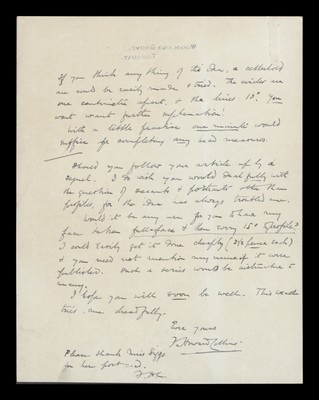 If you think anything of the idea, a celluloid
one could be easily made & tried. The wider
one centimetre apart, & the lines 10°. You
wont want further explanation!
With a little practice one minute would
suffice for completing any head measures.
Should you follow your article up by a
sequel. I do wish you would deal fully with
the question of portraits other than
profiles, for the has always troubled me.
Would it be any use for you to have my
face taken full-face & then every 15° to profile?
I could easily get it done cheaply (2/6 each)
& you need not mention my name if it were
published. Such a series would be instructive to
many.
I hope you will soon be well. This weather
tries me dreadfully.
Ever yours
F. Howard Collins.
Please thank Miss Biggs
for her post-cd.
F.H.C.